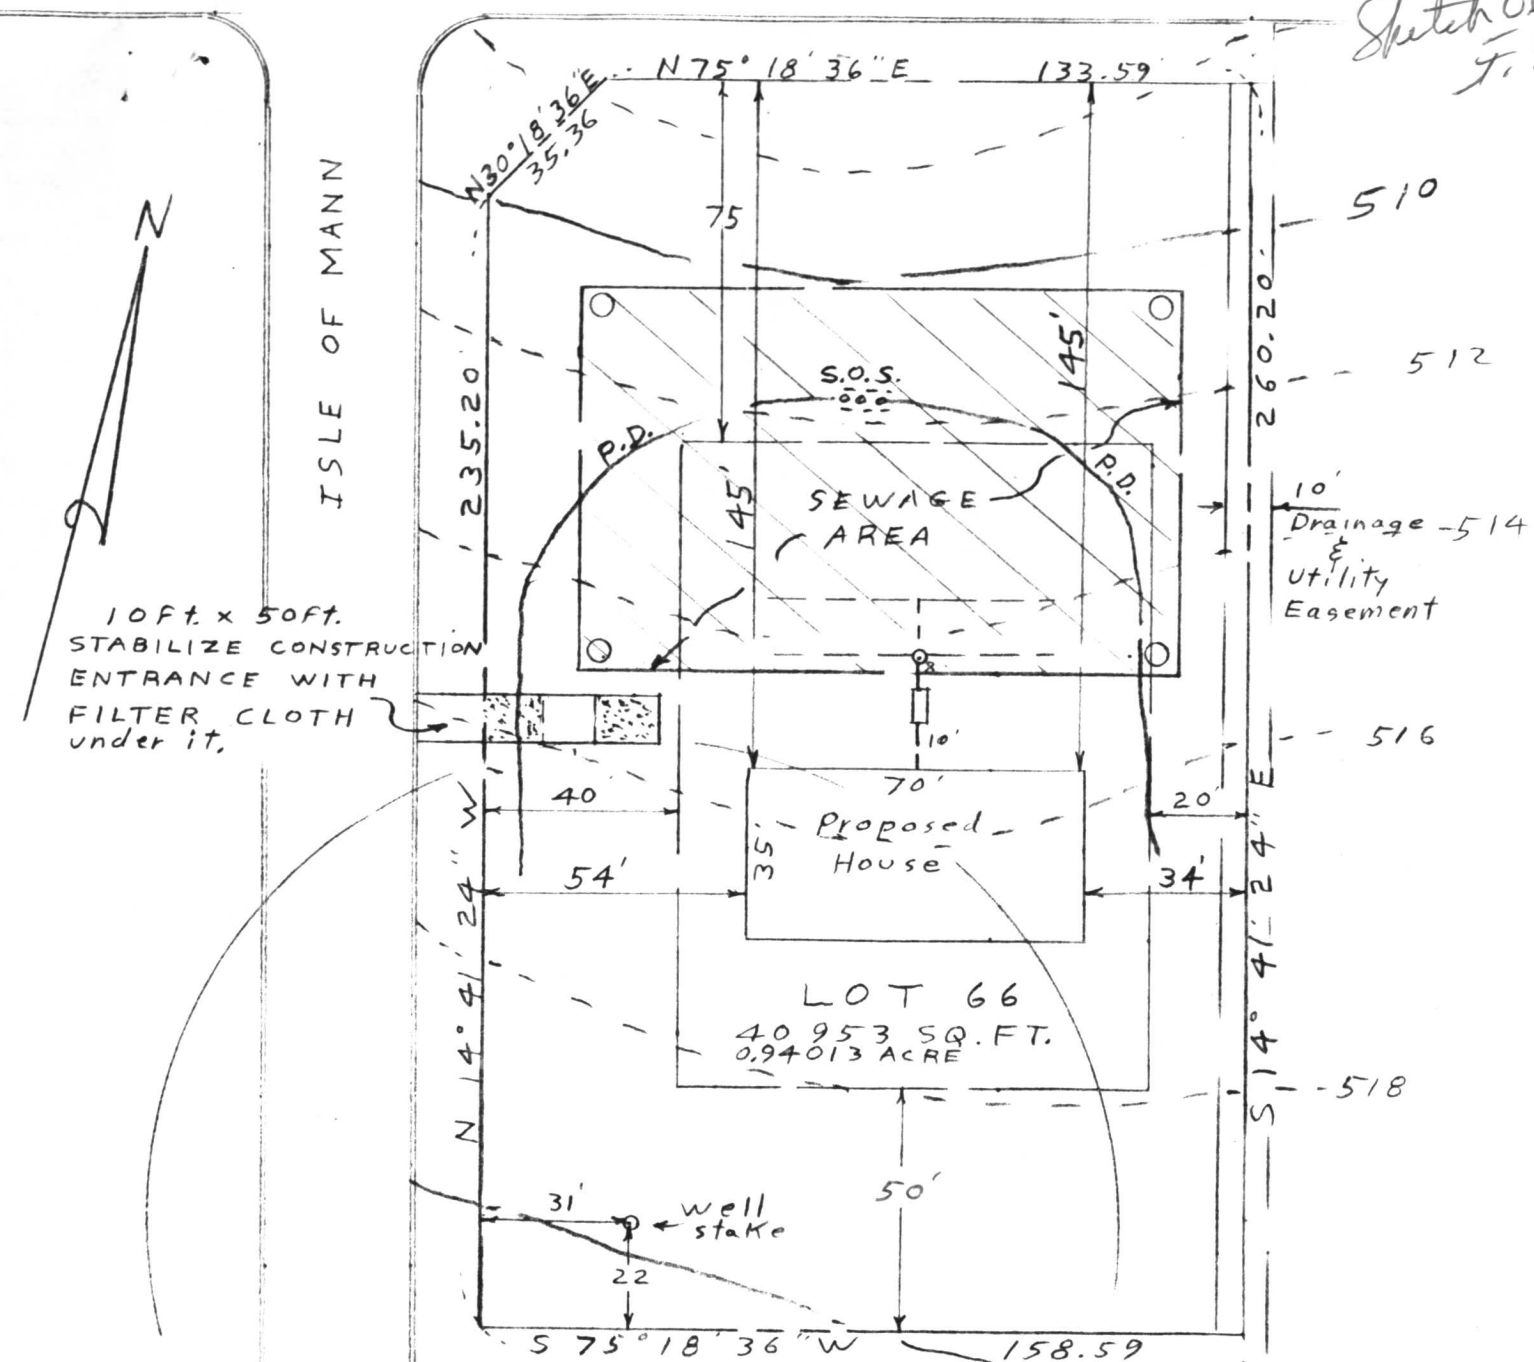 Sketch
N 75° 18' 36" E 133.59'
N30° 18' 36" E
35.36
N
ISLE OF MANN
75
510
235.20'
260.20'
S.O.S.
145'
512
P.D.
P.D.
145'
SEWAGE
AREA
10'
Drainage
&
Utility
Easement
514
10Ft. x 50Ft.
STABILIZE CONSTRUCTION
ENTRANCE WITH
FILTER CLOTH
under it.
10'
516
40
70'
20'
Proposed
House
35'
54'
34'
N 14° 41' 24" W
S 14° 41' 24" E
LOT 66
40 953 SQ. FT.
0.94013 ACRE
518
50'
31'
well
stake
22
S 75° 18' 36" W 158.59